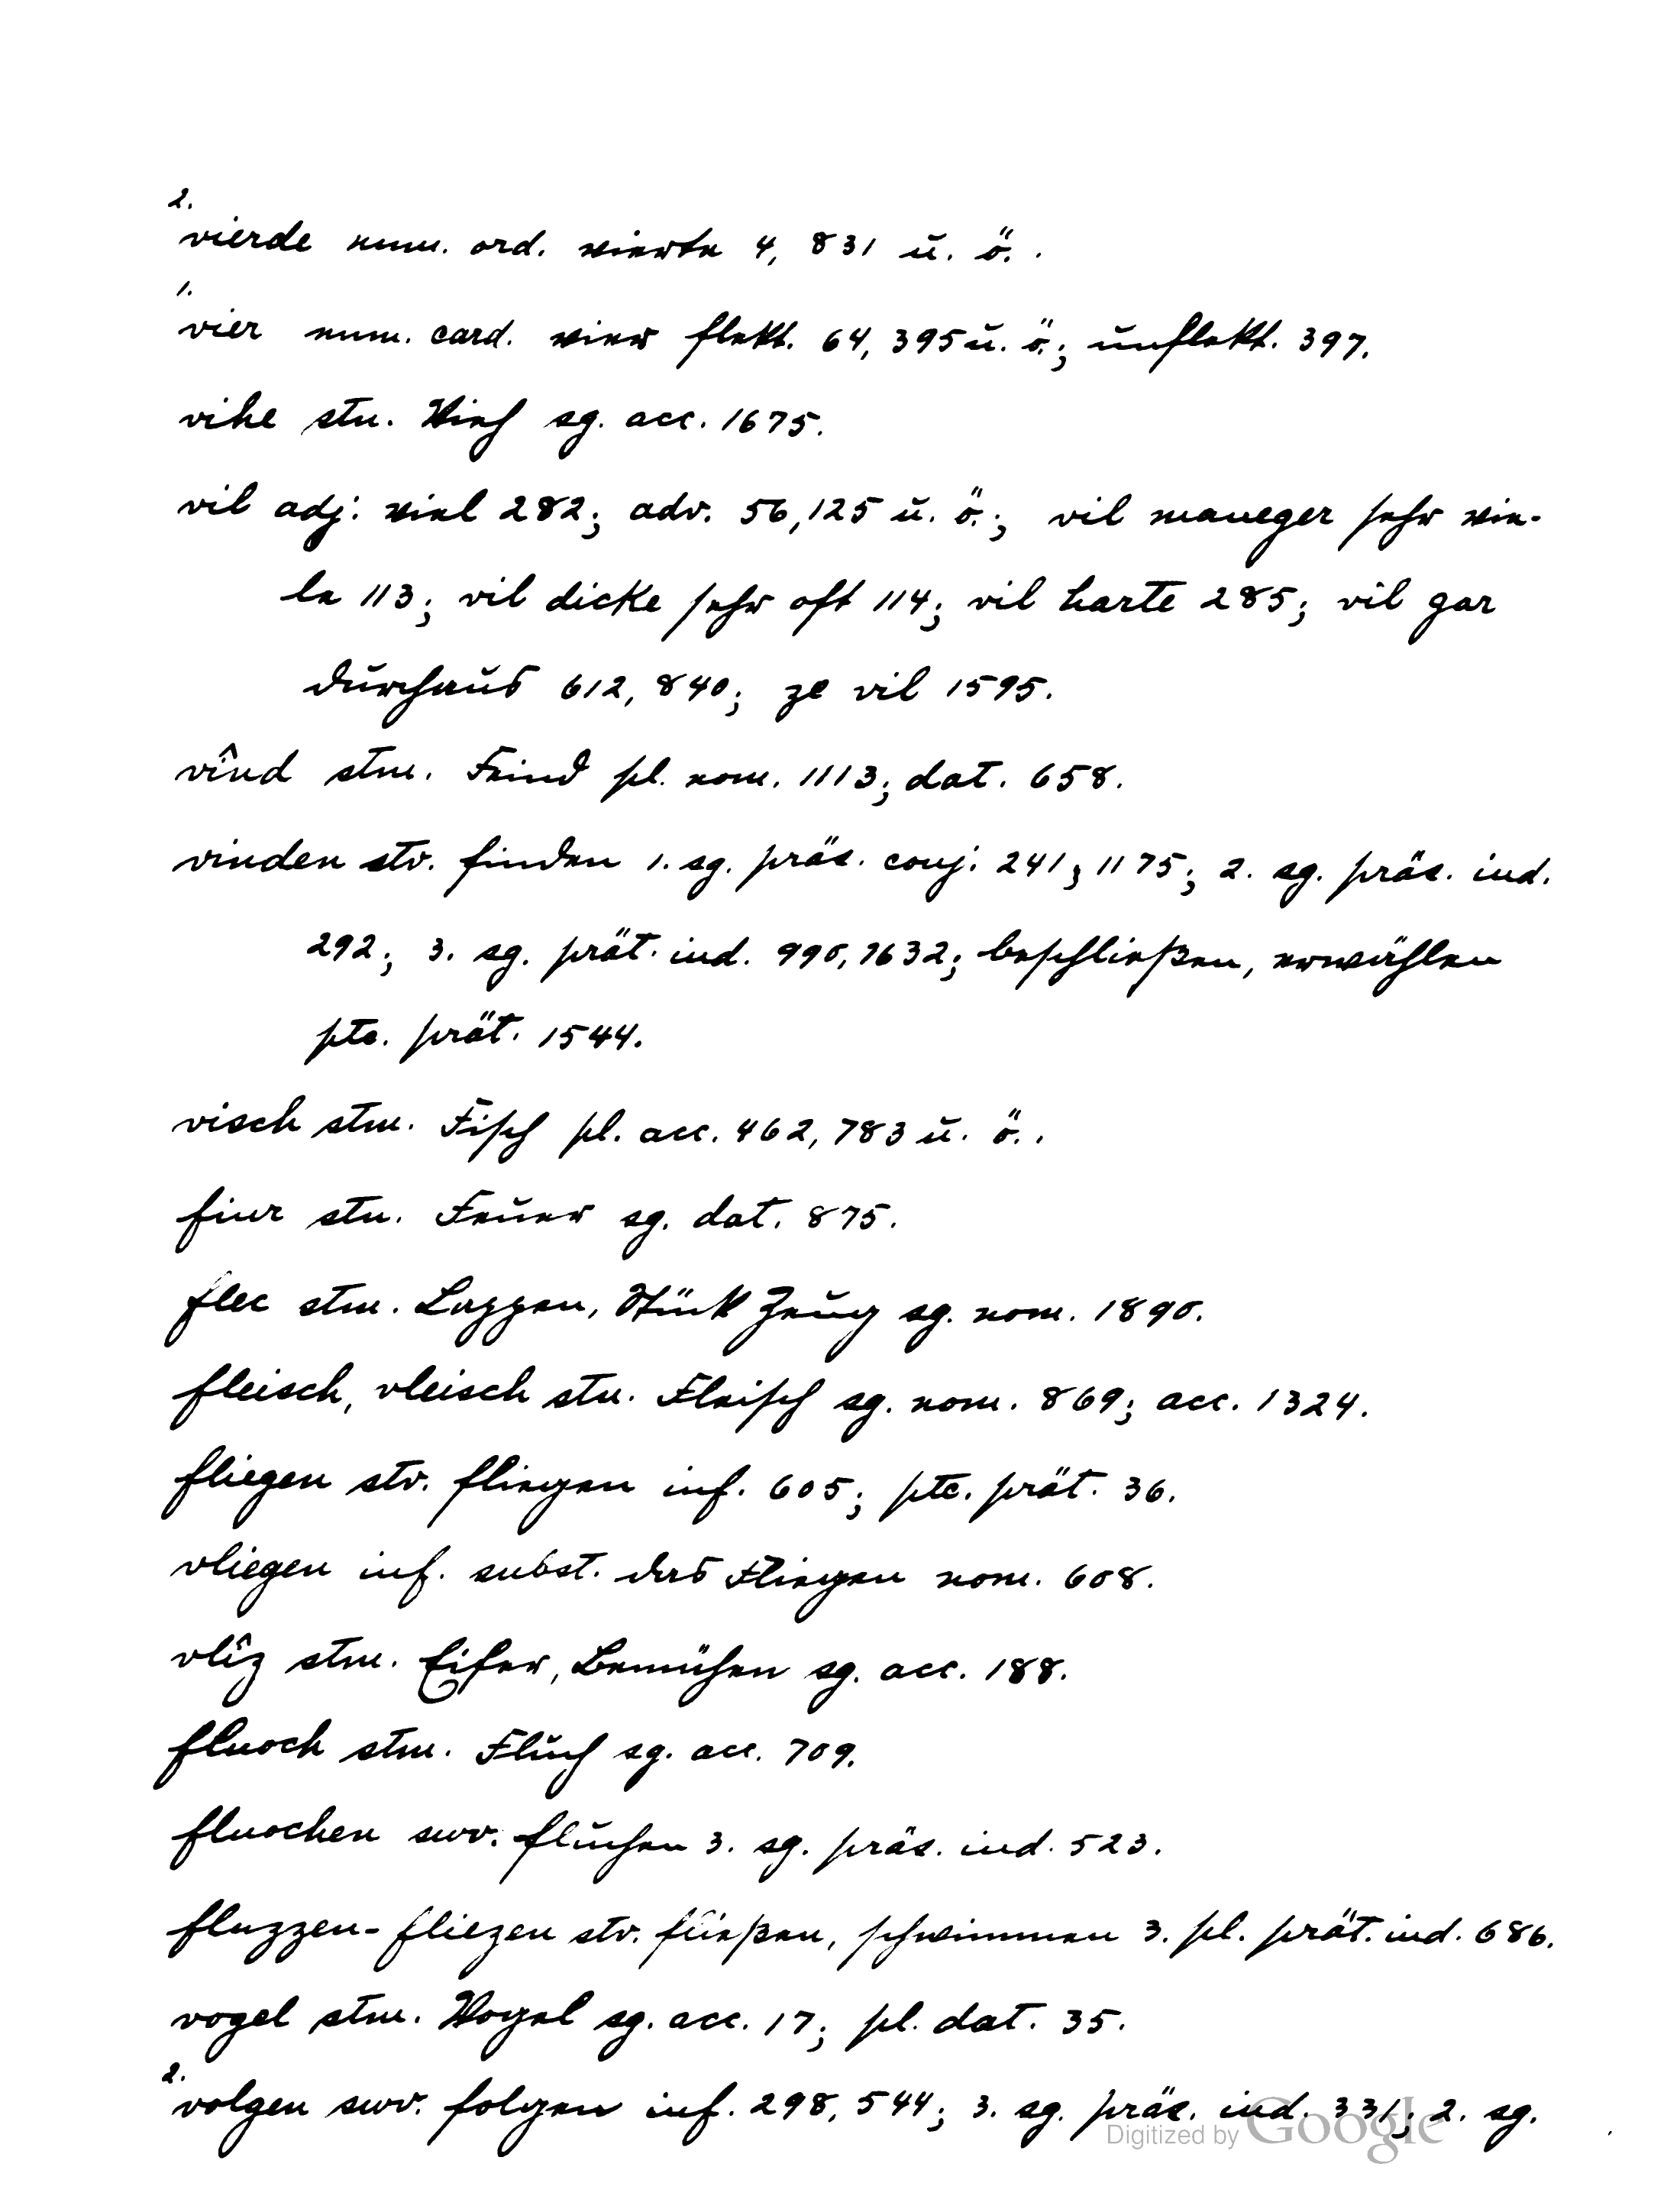 2.
vierde num. ord. vierte 4, 831 u. ö..
1.
vier num. card. vier flekt. 64, 395 u. ö.; unflekt. 397.
vihe stn. Vieh sg. acc. 1675.
vil adj. viel 282; adv. 56, 125 u. ö.; vil maneger sehr vie-
le 113; vil dicke sehr oft 114; vil harte 285; vil gar
durchaus 612, 840; ze vil 1595.
vînd stm. Feind pl. nom. 1113; dat. 658.
vinden stv. finden 1. sg. präs. conj. 241; 1175; 2. sg. präs. ind.
292; 3. sg. prät. ind. 990, 1632; beschließen, erwählen
ptc. prät. 1544.
visch stm. Fisch pl. acc. 462, 783 u. ö..
fiur stn. Feuer sg. dat. 875.
flec stm. Lappen, Stück Zeug sg. nom. 1890.
fleisch, vleisch stn. Fleisch sg. nom. 869; acc. 1324.
fliegen stv. fliegen inf. 605; ptc. prät. 36.
vliegen inf. subst. das Fliegen nom. 608.
vlîz stm. Eifer, Bemühen sg. acc. 188.
fluoch stm. Fluch sg. acc. 709.
fluochen swv. fluchen 3. sg. präs. ind. 523.
fluzzen - fliezen stv. fließen, schwimmen 3. pl. prät. ind. 686.
vogel stm. Vogel sg. acc. 17; pl. dat. 35.
2.
volgen swv. folgen inf. 298, 544; 3. sg. präs. ind. 331; 2. sg.
Digitized by Google